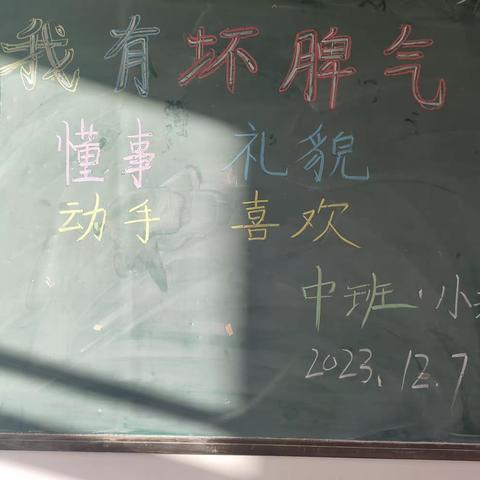 我有坏脾气
懂事 礼貌
动手 喜欢
中班·小
2023.12.7